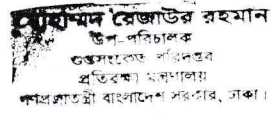 মোহাম্মদ রেজাউর রহমান
উপ-পরিচালক
গুপ্তসংকেত পরিদপ্তর
প্রতিরক্ষা মন্ত্রণালয়
গণপ্রজাতন্ত্রী বাংলাদেশ সরকার, ঢাকা।